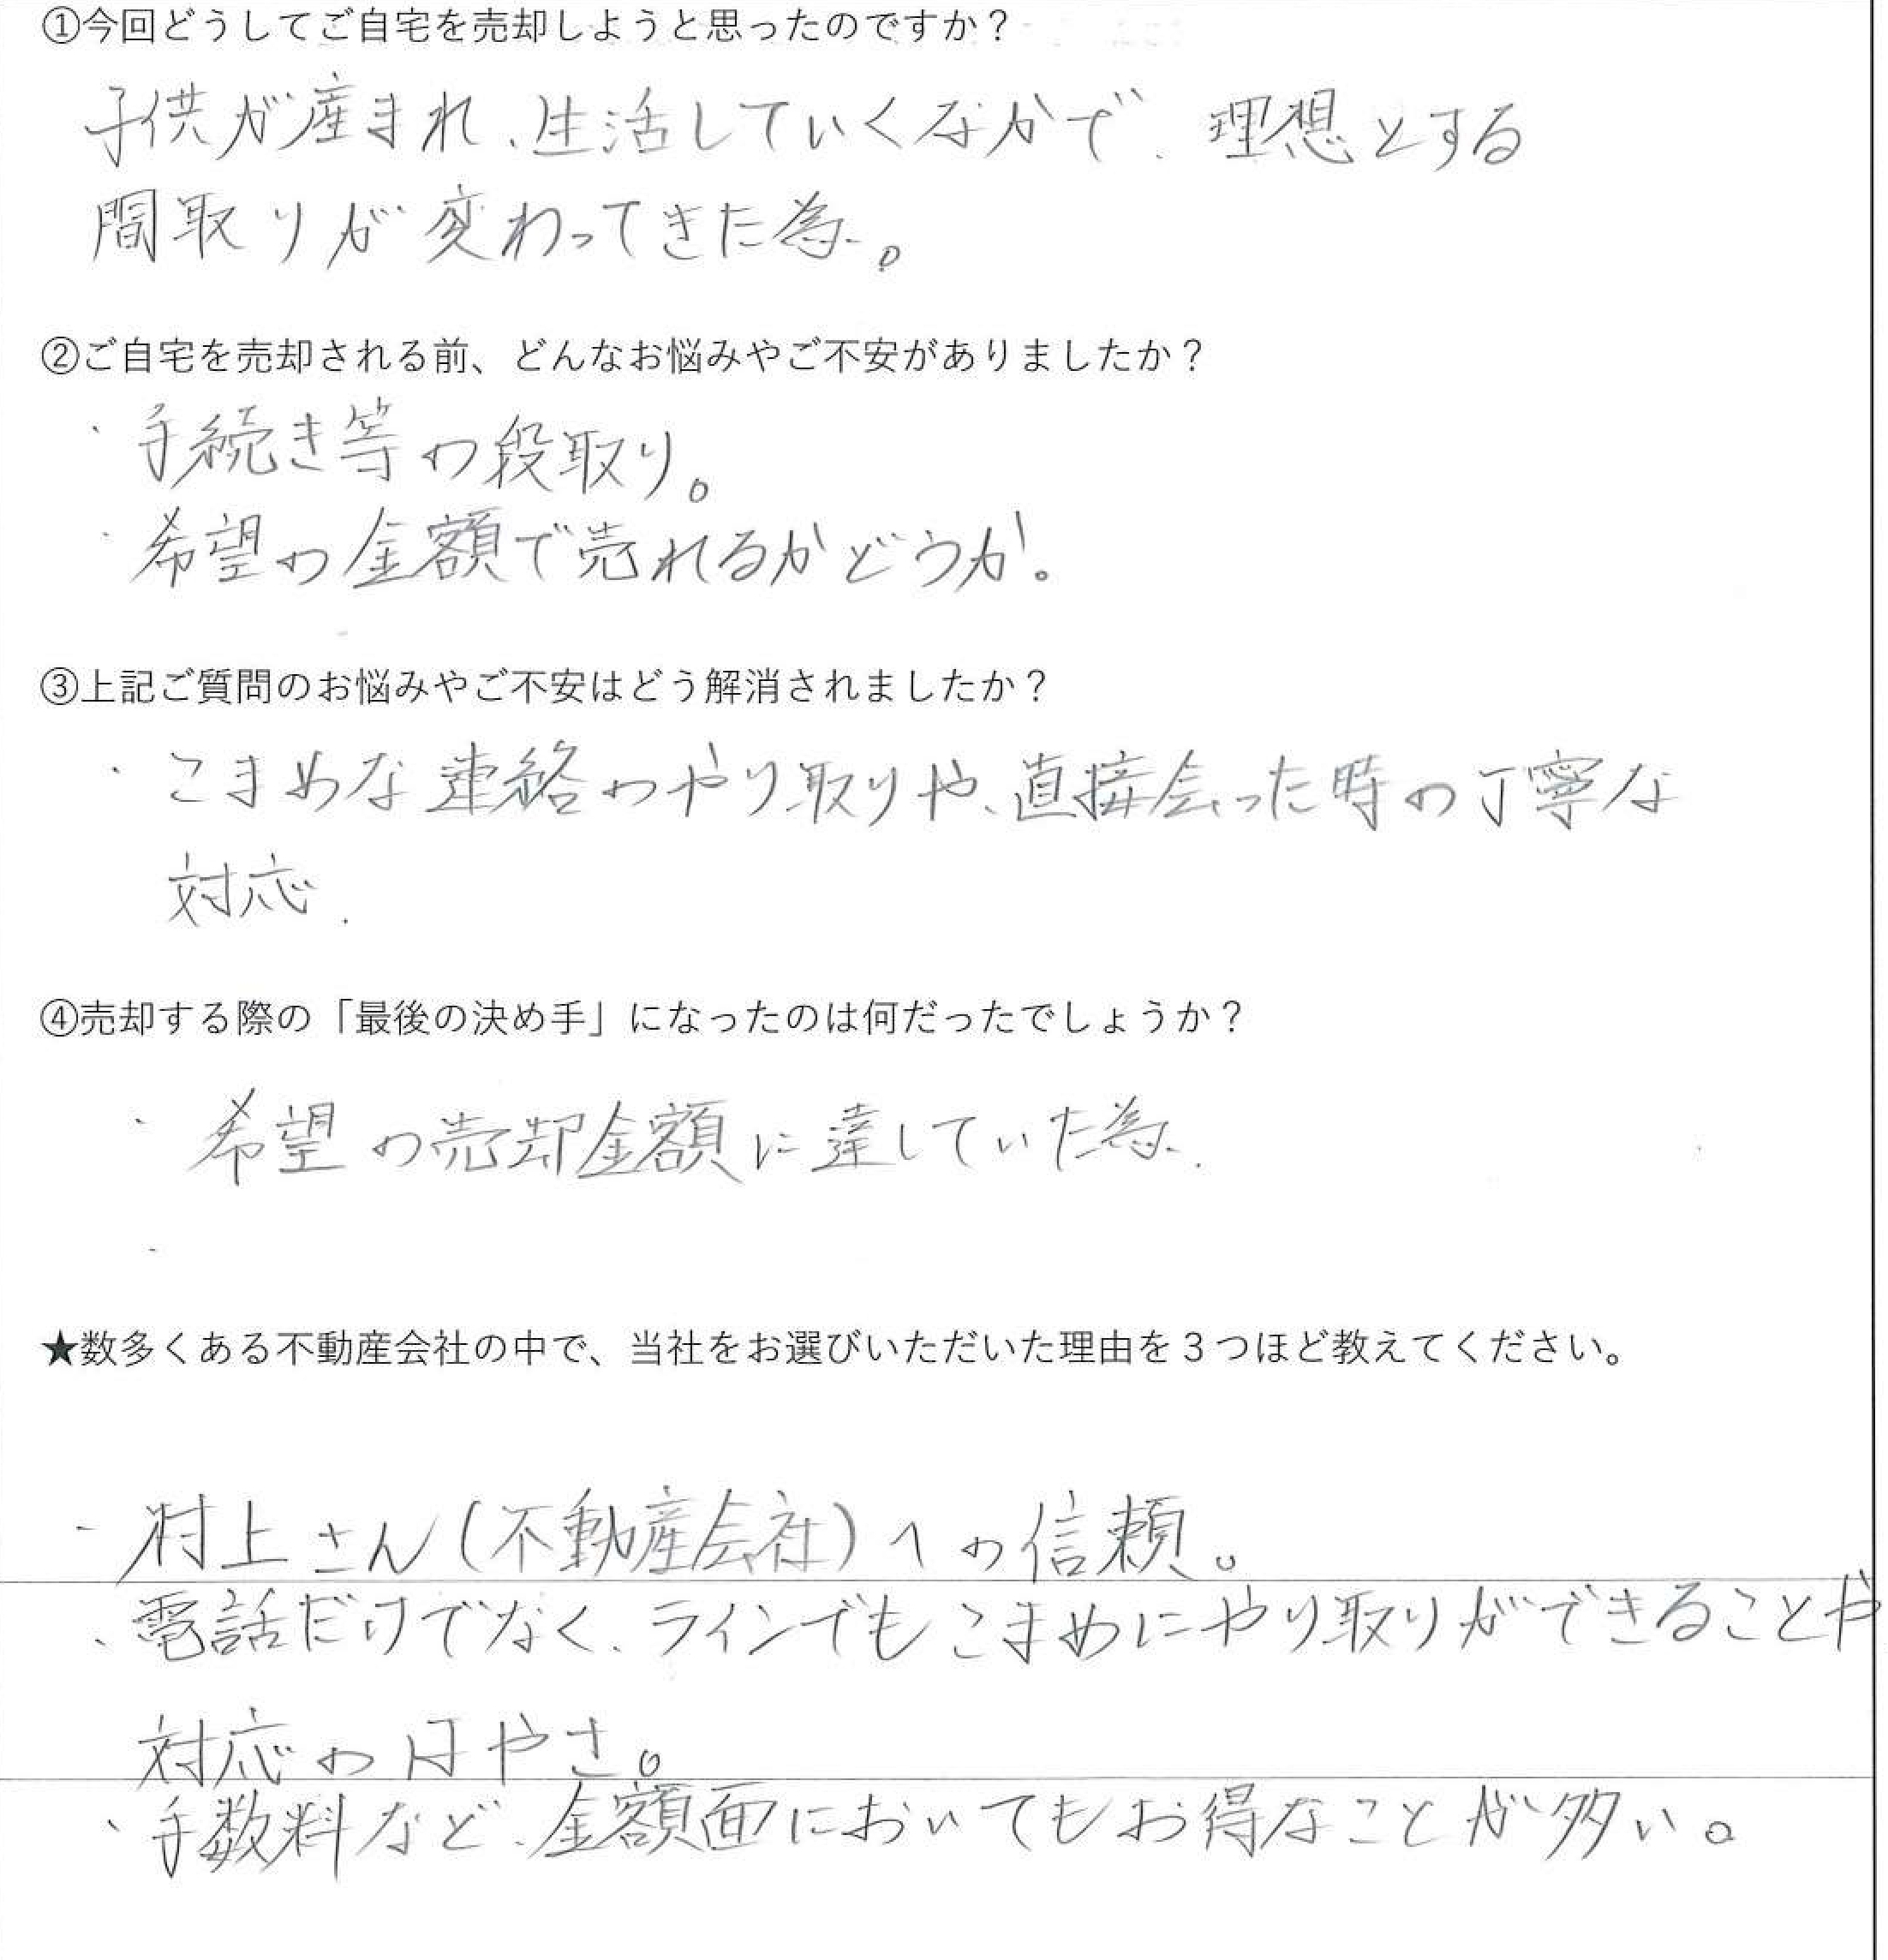 ①今回どうしてご自宅を売却しようと思ったのですか？
子供が産まれ、生活していくなかで、理想とする
間取りが変わってきた為。
②ご自宅を売却される前、どんなお悩みやご不安がありましたか？
・手続き等の段取り。
・希望の金額で売れるかどうか。
③上記ご質問のお悩みやご不安はどう解消されましたか？
・こまめな連絡のやり取りや、直接会った時の丁寧な
対応.
④売却する際の「最後の決め手」になったのは何だったでしょうか？
・希望の売却金額に達していた為.
★数多くある不動産会社の中で、当社をお選びいただいた理由を３つほど教えてください。
・村上さん(不動産会社)への信頼。
・電話だけでなく、ラインでもこまめにやり取りができることや
対応のはやさ。
・手数料など、金額面においてもお得なことが多い。